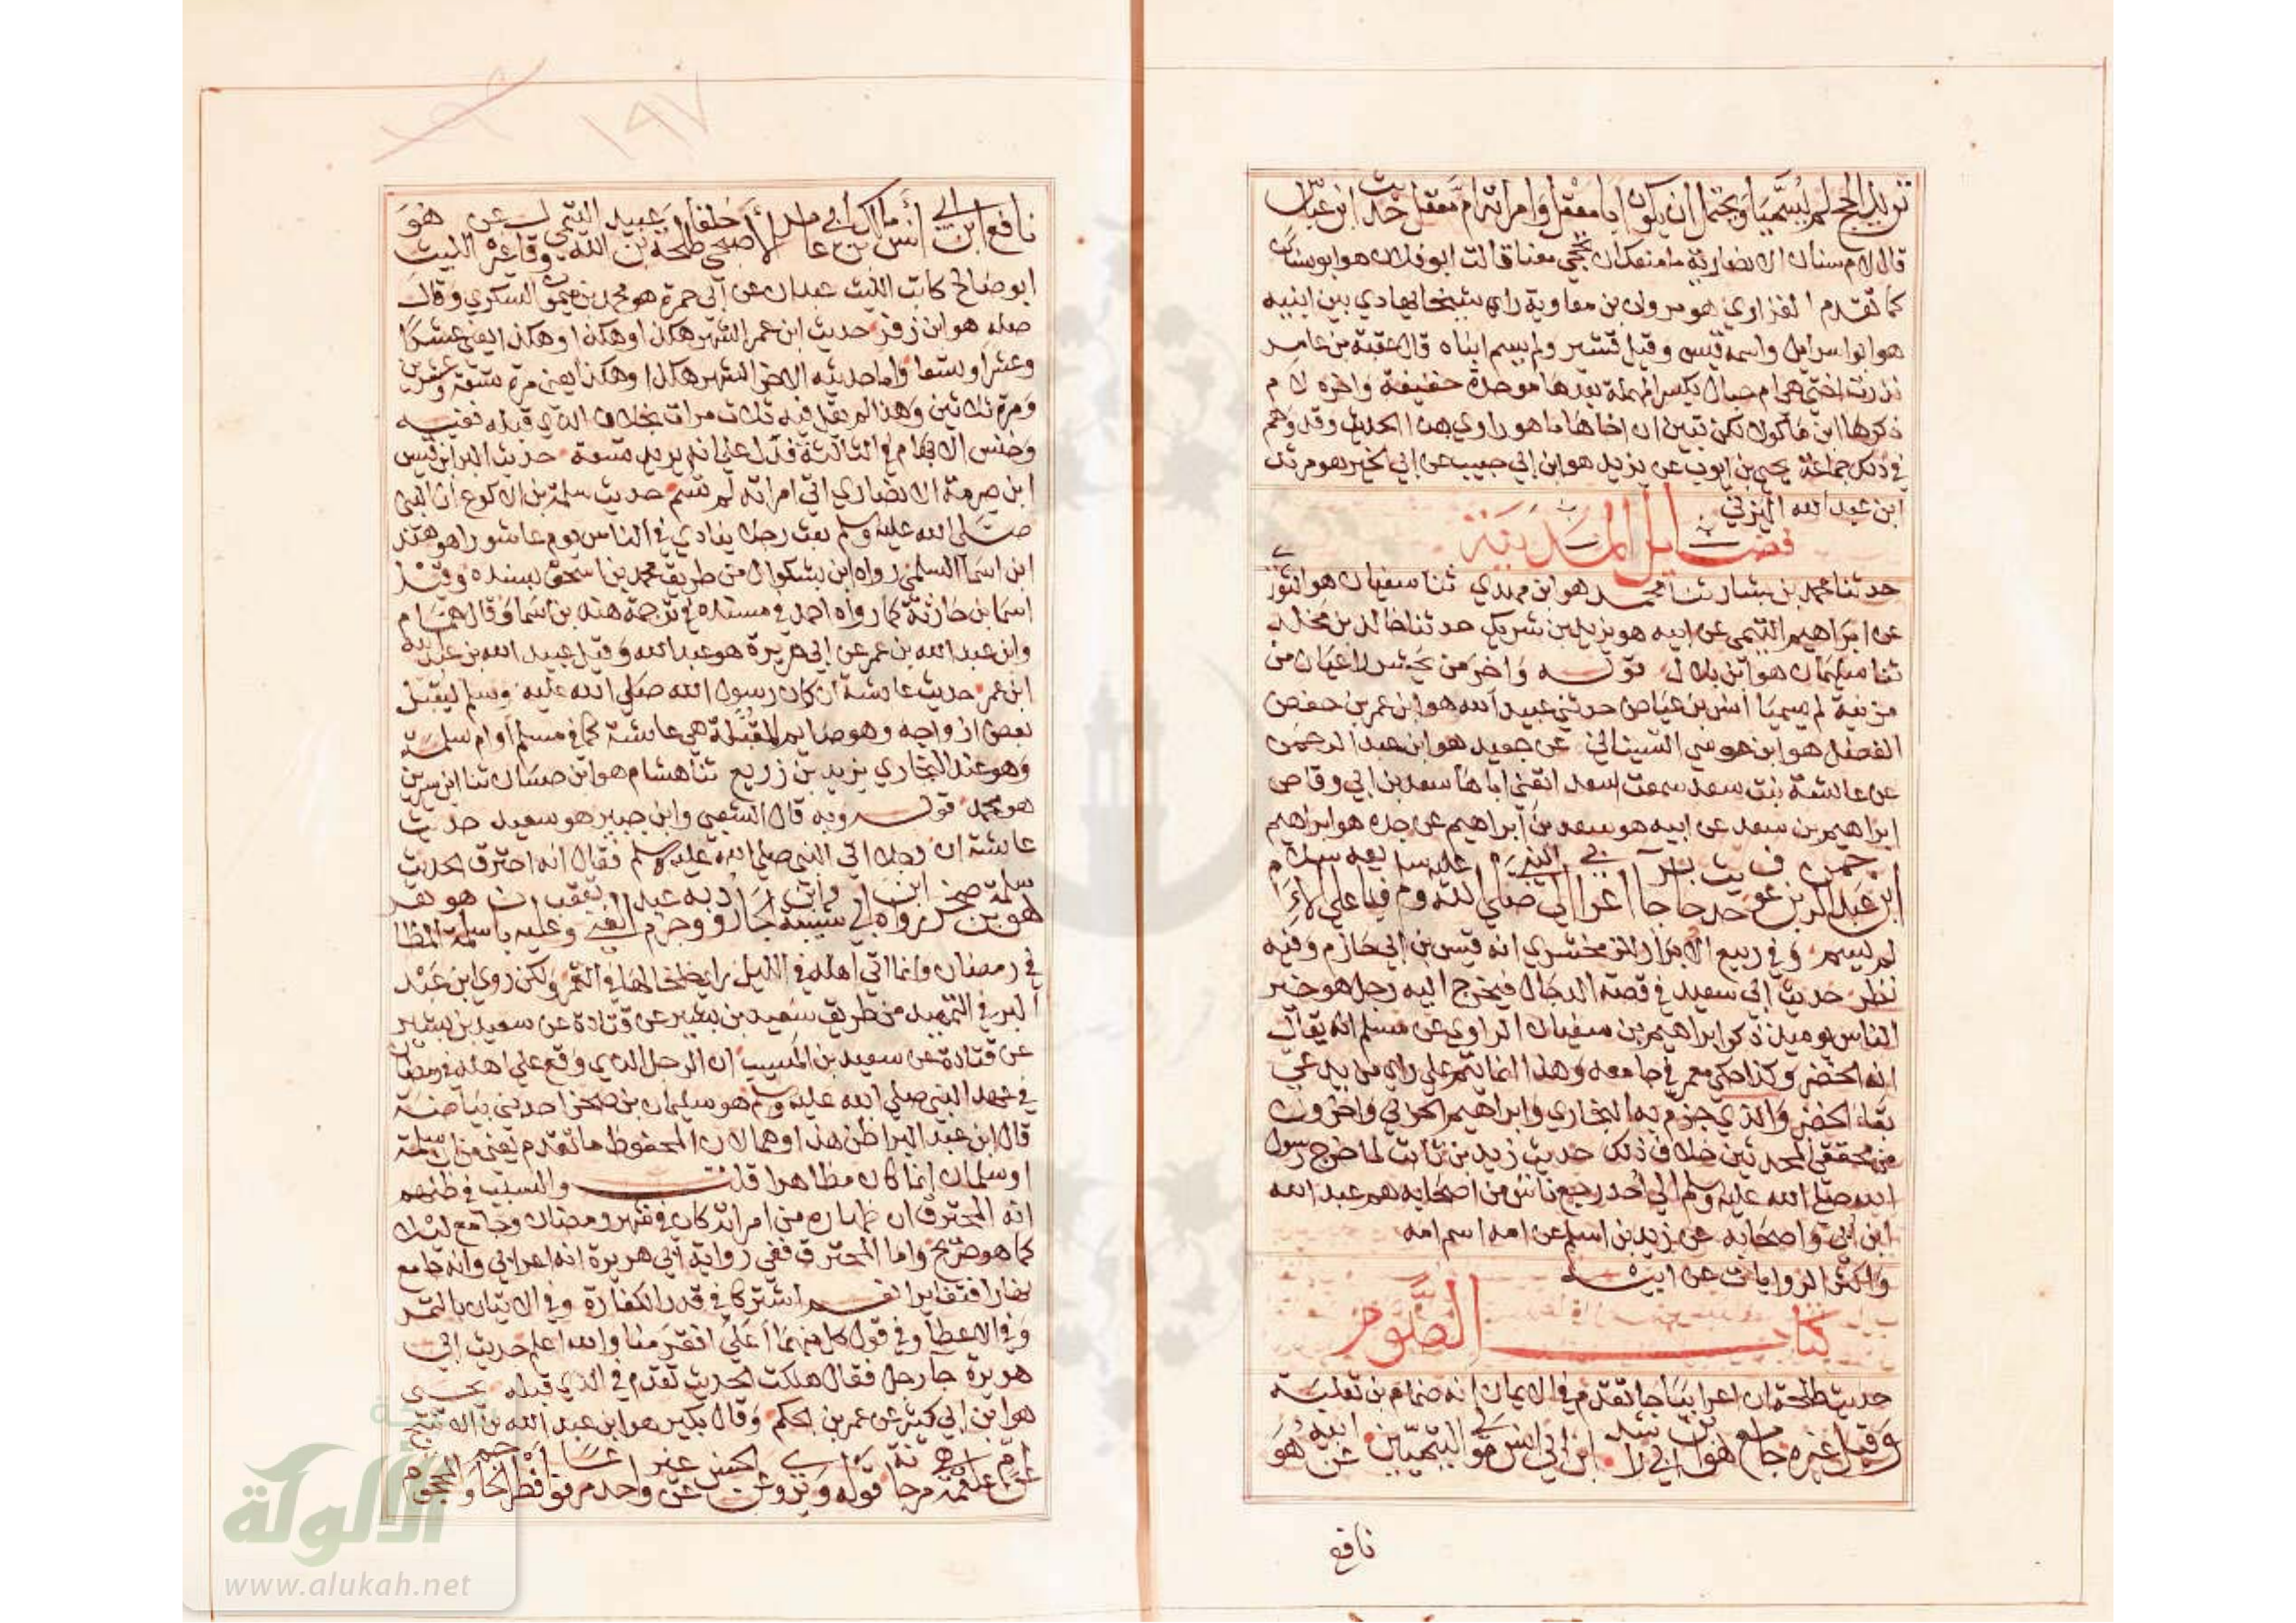 تريد الحج لم يسميا ويحتمل ان يكون ابا معقل وامراته ام معقل حديث ابن عباس
قال لام سنان الانصارية ما منعك ان تحجي معنا قالت ابو فلان هو ابو سنان
كما تقدم الفزاري هو مروان بن معاوية راي شيخا يهادي بين ابنيه
هو ابو اسرايل واسمه قيس وقيل قشير ولم يسم ابناه قال عقبة بن عامر
نذرت اختي هي ام حبال بكسر المهملة بعدها موحدة خفيفة واخره لام
ذكرها ابن ماكولا لكن تبين ان اخاها ما هو راوي هذا الحديث وقد وهم
في ذلك جماعة يحيى بن ايوب عن يزيد هو ابن ابي حبيب عن ابي الخير هو مرثد
ابن عبد الله اليزني
فضايل المدينة
حدثنا محمد بن بشار ثنا محمد هو ابن مهدي ثنا سفيان هو الثوري
عن ابراهيم التيمي عن ابيه هو يزيد بن شريك حدثنا خالد بن مخلد
ثنا سليمان هو ابن بلال قوله واخر من يحشر راعيان من
مزينة لم يسميا انس بن عياض حدثني عبيد الله هو ابن عمر بن حفص
الفضل هو ابن موسي السيناني عن جعيد هو ابن عبد الرحمن
عن عائشة بنت سعد سمعت سعد اتقني اباها سعد بن ابي وقاص
ابراهيم بن سعد عن ابيه هو سعد بن ابراهيم عن جده هو ابراهيم
ابن عبد الرحمن بن عوف حديث جابر جا اعرابي الي النبي صلي الله عليه وسلم فبايعه علي الاسلام
لم يسم وفي ربيع الابرار للزمخشري انه قيس بن ابي حازم وفيه
نظر حديث ابي سعيد في قصة الدجال فيخرج اليه رجل هو خير
الناس يوميذ ذكر ابراهيم بن سفيان الراوي عن مسلم انه يقال
انه الخضر وكذا حكي معمر في جامعه وهذا انما يتم علي راي من يدعي
بقاء الخضر والذي جزم به البخاري وابراهيم الحربي واخرون
من محققي المحدثين خلاف ذلك حديث زيد بن ثابت لما خرج رسول
الله صلي الله عليه وسلم الي احد رجع ناس من اصحابه هم عبد الله
ابن ابي واصحابه عن زيد بن اسلم عن امه اسم امه
واكثر الروايات عن ابيه
كتاب الصوم
حديث طلحة ان اعرابيا جا تقدم في الايمان انه ضمام بن ثعلبة
وقيل غيره جامع هو ابن ابي راشد ابن ابي انس مولي التيميين عن ابيه هو
نافع
١٩٧
نافع ابن ابي انس مالك بن ابي عامر الاصبحي خلفا طلحة بن عبيد الله التيمي وقا غيره عن الليث هو
ابو صالح كاتب الليث عبدان عن ابي حمزة هو محمد بن ميمون السكري وقال
صله هو ابن زفر حديث ابن عمر الشهر هكذا وهكذا وهكذا يعني عشرا
وعشرا وتسعا واما حديثه الاخر الشهر هكذا وهكذا يعني مرة تسعة وعشرين
ومرة ثلاثين وهذا لم يقل فيه ثلاث مرات بخلاف الذي قبله ففيه
وخنس الابهام في الثالثة فدل علي انه يريد تسعة حديث البرا ان قيس
ابن صرمة الانصاري اتي امراته لم تسم حديث سلمة بن الاكوع ان النبي
صلي الله عليه وسلم بعث رجلا ينادي في الناس يوم عاشورا هو هند
ابن اسما السلمي رواه ابن بشكوال من طريق محمد بن اسحق بسنده وقيل
اسما بن حارثة كما رواه احمد في مسنده في ترجمة هند بن اسما وقال همام
وابن عبد الله بن عمر عن ابي هريرة هو عبد الله وقيل عبيد الله بن عبد الله
ابن عمر حديث عائشة ان كان رسول الله صلي الله عليه وسلم ليقبل
بعض ازواجه وهو صايم المقبلة هي عائشة كما في مسلم او ام سلمة
وهو عند البخاري يزيد بن زريع ثنا هشام هو ابن حسان ثنا ابن سيرين
هو محمد قوله وبه قال الشعبي وابن جبير هو سعيد حديث
عائشة ان رجلا اتي النبي صلي الله عليه وسلم فقال انه احترق الحديث
هو سلمة بن صخر رواه ابن ابي شيبة وابن الجارود وجزم به عبد الغني وتعقب عليه بان سلمة هو المظاهر
في رمضان وانما اتي اهله في الليل راي خلخالها في القمر ولكن روي ابن عبد
البر في التمهيد من طريق سعيد بن بشير عن قتادة عن سعيد بن بشير
عن قتادة عن سعيد بن المسيب ان الرجل الذي وقع علي اهله في رمضان
في عهد النبي صلي الله عليه وسلم هو سليمان بن صخر احد بني بياضة
قال ابن عبد البر اظن هذا وهما لان المحفوظ ما تقدم يعني من ان سلمة
او سلمان انما كان مظاهرا قلت والسبب في ظنهم
انه المحترق ان ظهاره من امراته كان في شهر رمضان وجامع ليلا
كما هو صريح واما المحترق ففي رواية ابي هريرة انه اعرابي وانه جامع
نهارا فتغايرا نعم اشتركا في قدر الكفارة وفي الاتيان بالتمر
وفي الاعطا وفي قول كل منهما اعلي افقر منا والله اعلم حديث ابي
هريرة جا رجل فقال هلكت الحديث تقدم في الذي قبله يحيى
هو ابن ابي كثير عن عمر بن الحكم وقال بكير هو ابن عبد الله بن الاشج
عن ام علقمة مرجانة قوله ويروي عن الحسن عن غير واحد مرفوعا افطر الحاجم والمحجوم
شبكة
الألوكة
www.alukah.net